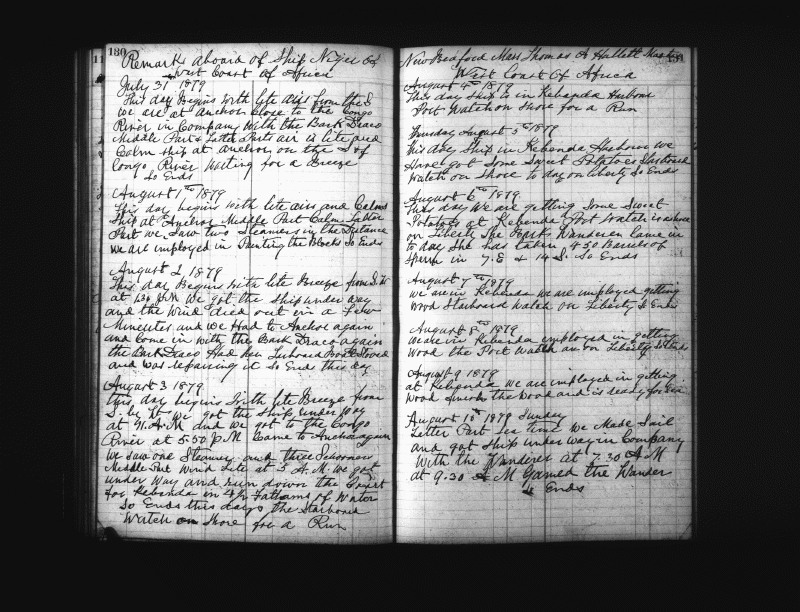 130
Remarks aboard of Ship Niger of
West Coast of Africa
July 31 1879
This day Begins with lite airs from the S
we are at Anchor close to the Congo
River in Company with the Bark Draco
Middle Part & Latter Parts air is lite and
Calm ship at anchor on the S of
Congo River Waiting for a Breeze
So Ends
August 1st 1879
This day begins with lite airs and Calms
Ship at Anchor Middle Part Calm Latter
Part we Saw two Steamers in the Distance
we are imployed in Painting the Blocks So Ends
August 2 1879
This day Begins with lite Breeze from S.W
at 130 P.M we got the Ship under way
and the Wind died out in a Few
Mineutes and we Had to Anchor again
and Come in with the Bark Draco again
the Bark Draco Had her Larboard Boat Stoved
and was repairing it So Ends this day
August 3 1879
this day begins With lite Breeze from
S. by W we got the Ship under Way
at 11. A.M and we got to the Congo
River at 5.50 P.M Came to Anchor again
we Saw one Steamer and three Schooners
Middle Part Wind Lite at 5 A.M. we got
under Way and run down the
for Kebenda in 4½ Fathams of Water
So Ends this day the Starboard
Watch on Shore for a Run
New Bedford Mass Thomas A Hallett Master
131
West Coast Of Africa
August 4th 1879
This day Ship is in Kebenda Harbour
Port Watch on Shore for a Run
Tuesday August 5th 1879
This day Ship in Kebenda Harbour we
Have got Some Sweet Potatoes Starboard
Watch on Shore to day on liberty So Ends
August 6th 1879
This day We are getting Some Sweet
Potatoes at Kebenda Port Watch is ashore
on Liberty The Bark Wanderer Came in
to day She has taken 450 Barrels of
Sperm in 7.E & 14 S. So Ends
August 7th 1879
we are in Kebenda we are imployed getting
Wood Starboard Watch on Liberty So Ends
August 8th 1879
we are in Kebenda imployed in getting
Wood the Port Watch are on Liberty So Ends
August 9 1879
at Kebenda we are imployed in getting
Wood the Wood and is ready for sea
August 10th 1879 Sunday
Latter Part Sea time We Made Sail
and got Ship under way in Company
With the Wanderer at 7.30 A M
at 9.30 A M Gamed the Wander
So Ends